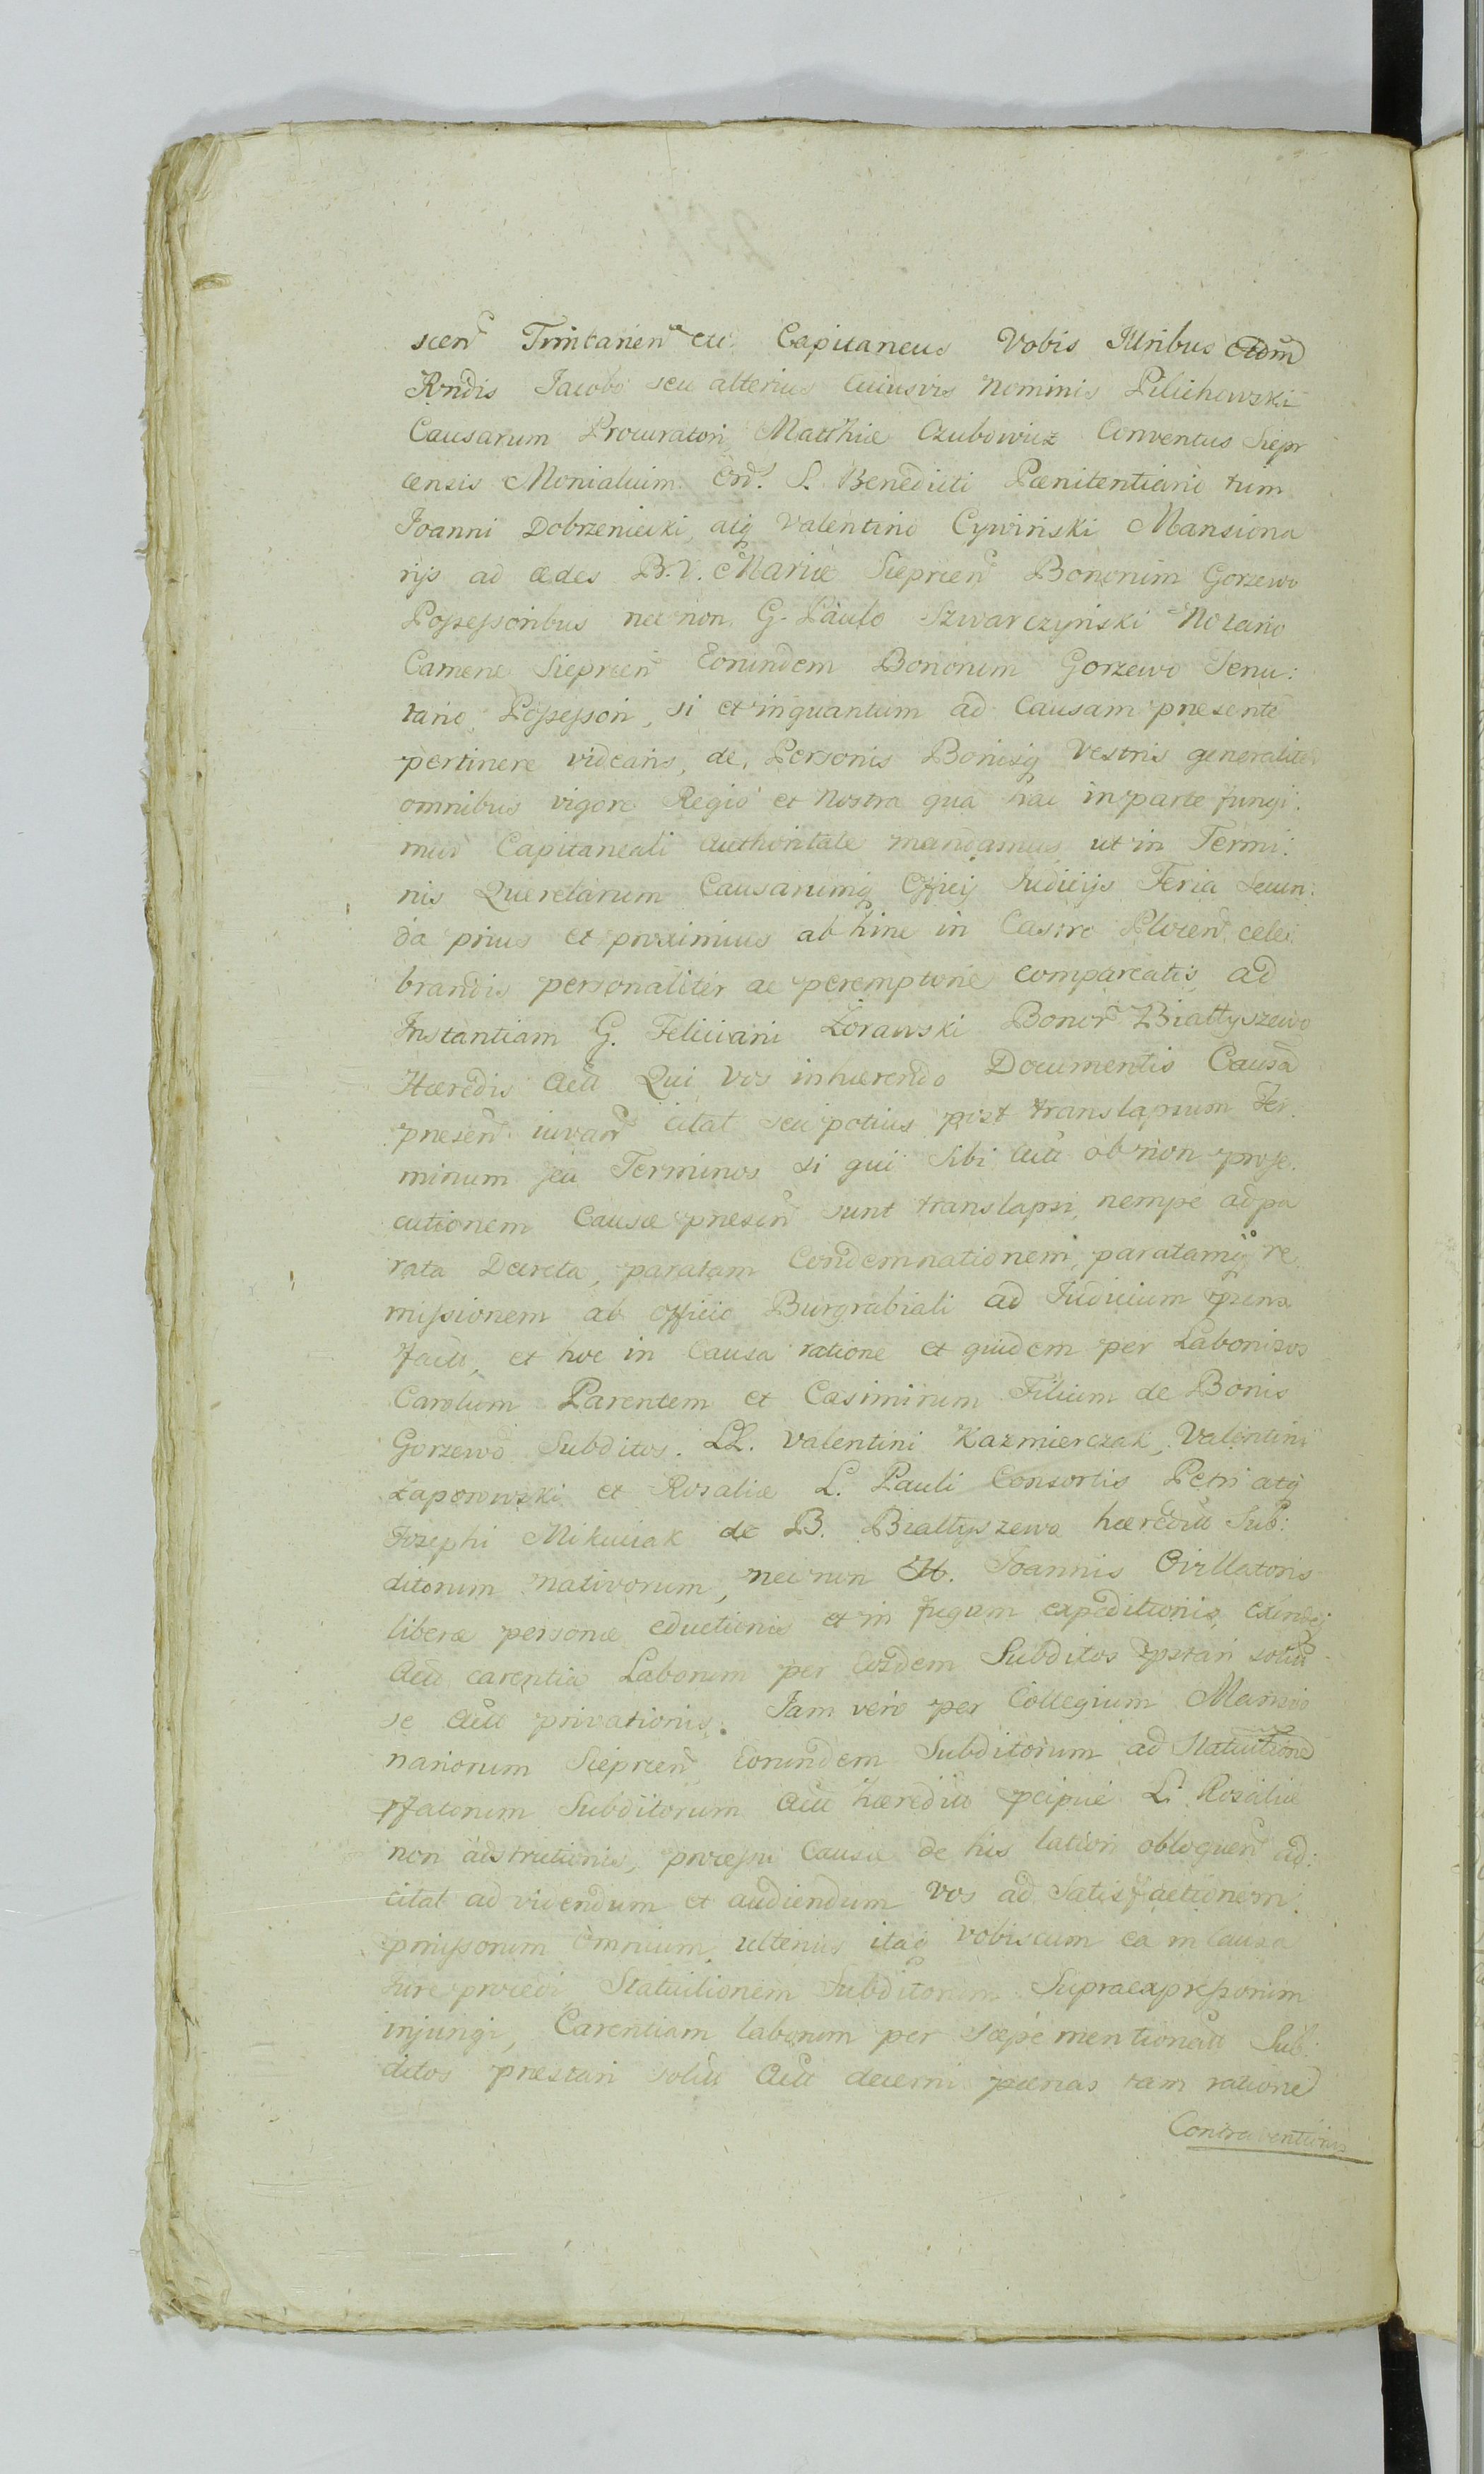 scen Trintarien etc. Capitaneus Vobis Illribus Adm
Rndis Jacobo seu alterius cuiusvis nominis Pilichowski
Causarum Procuratori, Matthiæ Czubowicz Conventus Siepr
censis Monialium Ord. S. Benedicti Pænitentiario tum
Joanni Dobrzeniecki, atq Valentino Cywiński Mansiona
rijs ad ædes B. V. Mariæ Sieprcen Bonorum Gorzewo
Possessoribus nec non G. Paulo Szwarczyński Notario
Cameræ Sieprcen Eorundem Bonorum Gorzewo Tenu:
tario Possessori, si et inquantum ad Causam presente
pertinere videaris, de Personis Bonisq Vestris generaliter
omnibus vigore Regio et Nostra qua hac in parte fungi:
mur Capitaneali Authoritate mandamus ut in Termi:
nis Querelarum Causarumq Officij Judicijs Feria Secun:
da prius et proximius ab hinc in Castro Plocen cele:
brandis personaliter ac peremptorie compareatis, ad
Instantiam G. Feliciani Żorawski Bonor Białłyszewo
Hæredis Actt Qui Vos inhærendo Documentis Causa
presen iuvan citat seu potius post translapsum Ter:
minum seu Terminos si qui sibi Actt ob non prose:
cutionem Causæ presen sunt translapsi, nempe ad pa
rata Decreta, paratam Condemnationem, paratamq re
missionem ab officio Burgrabiali ad Judicium prens
facti, et hoc in Causa ratione et quidem per Laboriosos
Carolum Parentem et Casimirum Filium de Bonis
Gorzewo Subditos. LL. Valentini Kazmierczak, Valentini
Zaporowski et Rosaliæ L. Pauli Consortis Petri atq
Josephi Mikuciak de B. Białłyszewo hæreditt Sub:
ditorum nativorum, nec non H. Joannis Oirllatoris
liberæ personæ eductionis et in fugam expeditionis, exindeq
Actt carentiæ Laborum per eosdem Subditos pstari solitt
se Actt privationis. Jam vero per Collegium Mansio
nariorum Sieprcen Eorundem Subditorum ad Statuitione
pfatorum Subditorum Actt hæreditt pcipue L. Rosaliæ
non adstrictionis, processu Causæ de his latiori obloquen ad:
citat ad videndum et audiendum Vos ad Satisfactionem
pmissorum omnium, ulterius itaq vobiscum ea in Causa
Jure procedi Statuitionem Subditorum Supraexpressorum
injungi, Carentiam laborum per sæpe mentionatt Sub:
ditos prestari solitt Actt decerni pænas tam ratione
Contraventionis